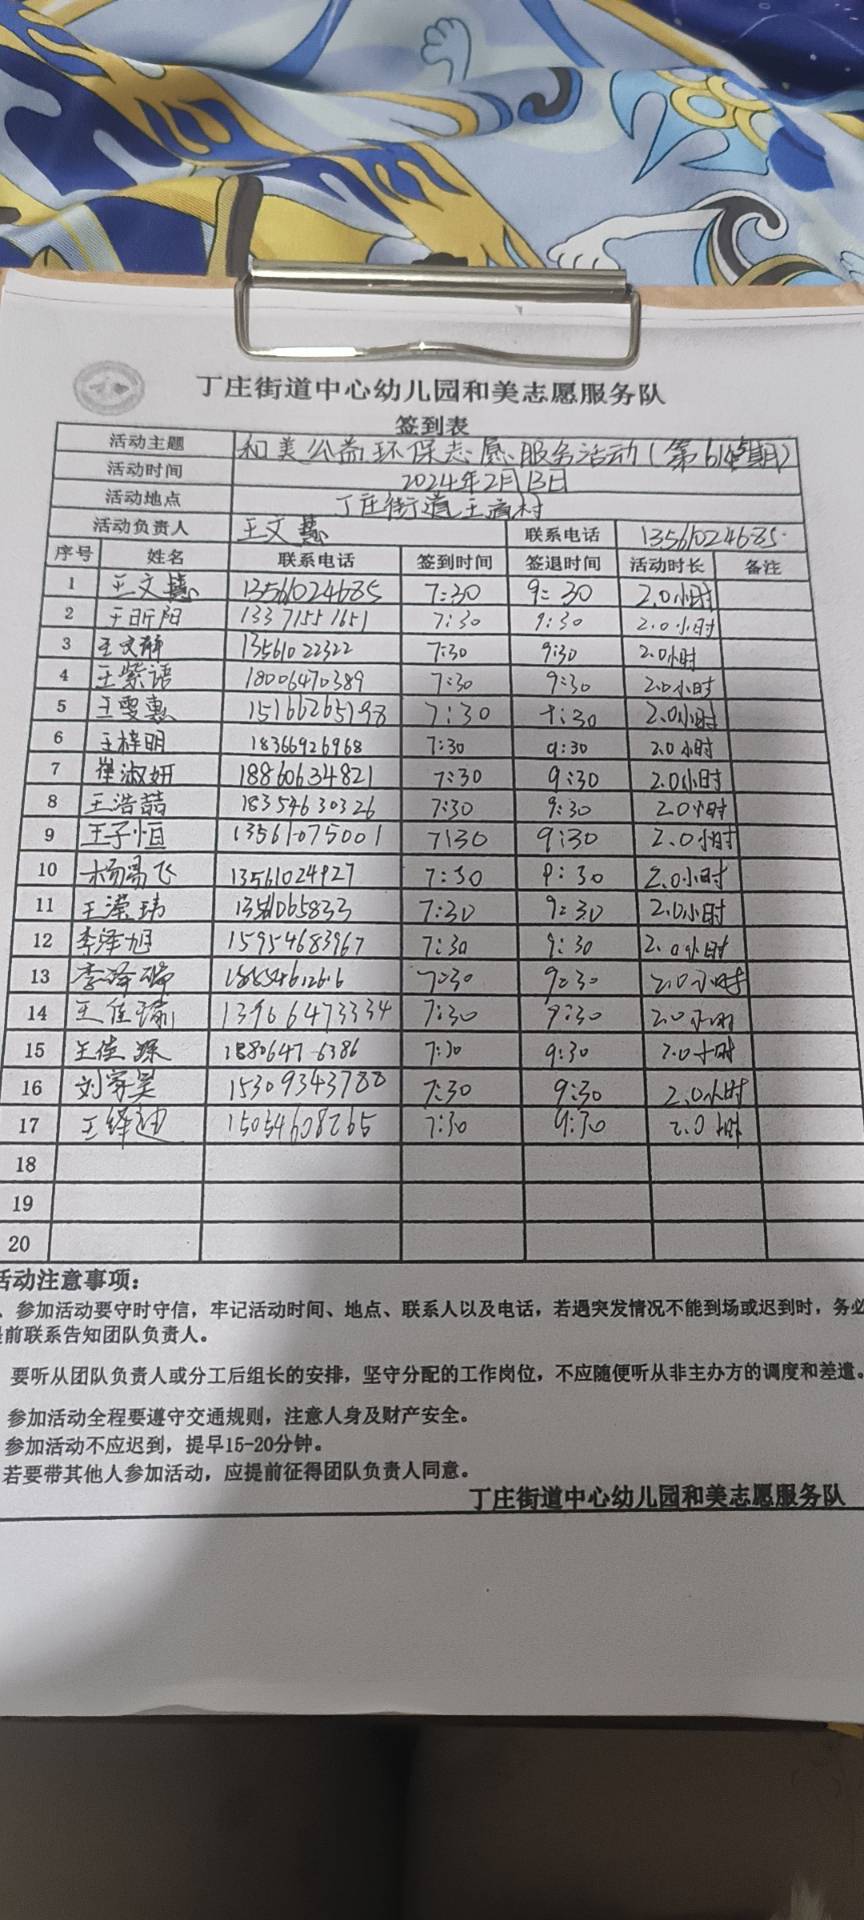 丁庄街道中心幼儿园和美志愿服务队
签到表
活动主题 和美公益环保志愿服务活动
活动时间 2024年2月13日
活动地点 丁庄街道王道村
活动负责人 王文慧 联系电话 13561024685
序号 姓名 联系电话 签到时间 签退时间 活动时长 备注
1 王文慧 13561024685 7:30 9:30 2.0小时
2 王昕阳 13371551651 7:30 9:30 2.0小时
3 王文静 13561022322 7:30 9:30 2.0小时
4 王紫语 18006470389 7:30 9:30 2.0小时
5 王雯惠 15166265198 7:30 9:30 2.0小时
6 王梓明 18366926968 7:30 9:30 2.0小时
7 淑妍 18860634821 7:30 9:30 2.0小时
8 王浩喆 18354630326 7:30 9:30 2.0小时
9 王子恒 13561075001 7:30 9:30 2.0小时
10 杨禹飞 13561024927 7:30 9:30 2.0小时
11 王滢玮 7:30 9:30 2.0小时
12 李泽旭 15954683967 7:30 9:30 2.0小时
13 李泽瑞 7:30 9:30 2.0小时
14 王佳瑜 13966473334 7:30 9:30 2.0小时
15 王佳 18806476386 7:30 9:30 2.0小时
16 刘家昊 15309343788 7:30 9:30 2.0小时
17 王绎迪 15054608265 7:30 9:30 2.0小时
18
19
20
活动注意事项：
、参加活动要守时守信，牢记活动时间、地点、联系人以及电话，若遇突发情况不能到场或迟到时，务必
前联系告知团队负责人。
要听从团队负责人或分工后组长的安排，坚守分配的工作岗位，不应随便听从非主办方的调度和差遣。
参加活动全程要遵守交通规则，注意人身及财产安全。
参加活动不应迟到，提早15-20分钟。
若要带其他人参加活动，应提前征得团队负责人同意。
丁庄街道中心幼儿园和美志愿服务队